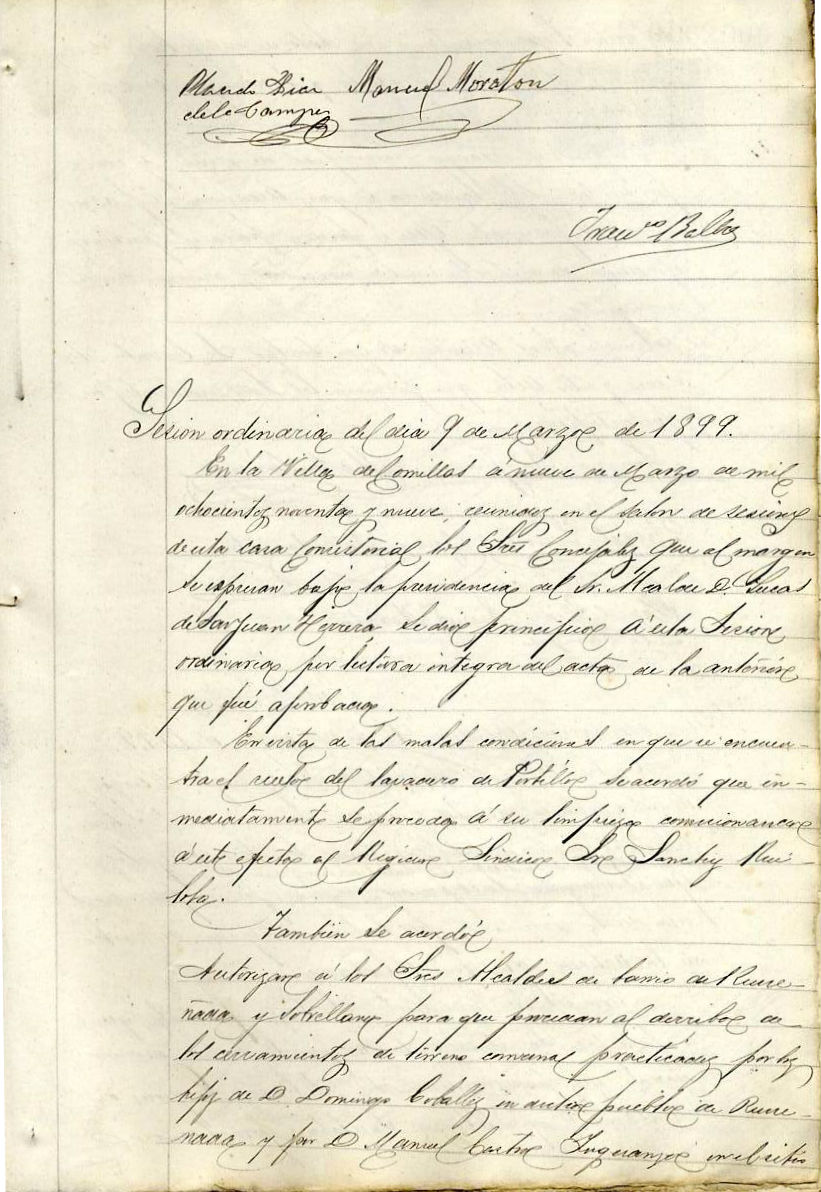 Manuel Moratton
de la Campa
Franco Balbas
Sesion ordinaria del dia 9 de Marzo de 1899.
En la Villa de Comillas a nueve de Marzo de mil
ochocientos noventa y nueve, reunidos en el salon de sesiones
de esta casa Consistorial los Sres Concejales que al margen
se espresan bajo la presidencia del Sr. Alcalde D. Lucas
de San Juan Herrera se dio principio á esta Sesion
ordinaria por lectura integra del acta de la anterior
que fué aprobada.
En vista de las malas condiciones en que se encuen-
tra el suelo del lavadero de Portillo se acordó que in-
mediatamente se proceda á su limpieza comisionando
á este efecto al Regidor Sindico Sr Sanchez Rui-
loba.
También se acordó
Autorizar á los Sres Alcaldes de barrio de Ruise-
ñada y Sobrellano para que procedan al derribo de
los cerramientos de terreno comunal practicados por los
hijos de D Domingo en dicho pueblo de Ruise-
ñada y por D Manuel Castro Inguanzo en el sitio